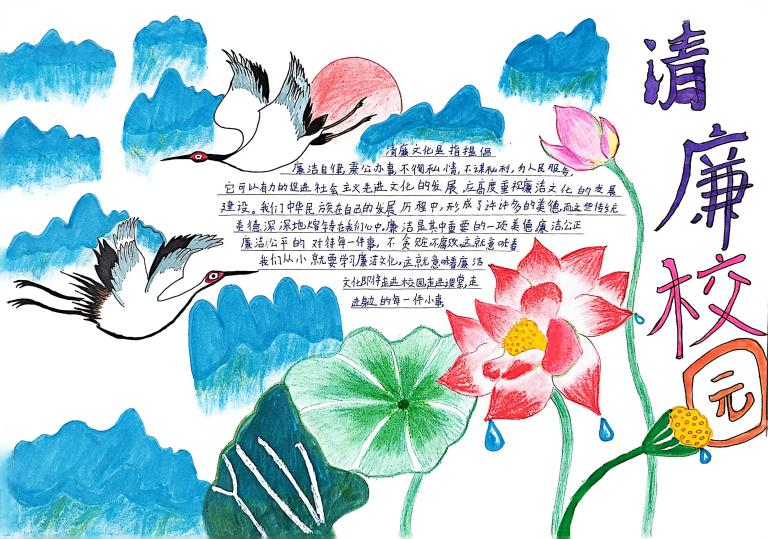 清廉校园
清廉文化是指提倡
廉洁自律,秉公办事,不徇私情,不谋私利,为人民服务,
它可以有力的促进社会主义先进文化的发展,应高度重视廉洁文化的发展
建设。我们中华民族在自己的发展历程中,形成了许许多多的美德,而这些传统
美德深深地熔铸在我们心中,廉洁是其中重要的一项美德廉洁公正
廉洁公平的对待每一件事,不贪赃不腐败,这就意味着
我们从小就要学习廉洁文化,这就意味着廉洁
文化即将走进校园走进课堂,走
进身边的每一件小事